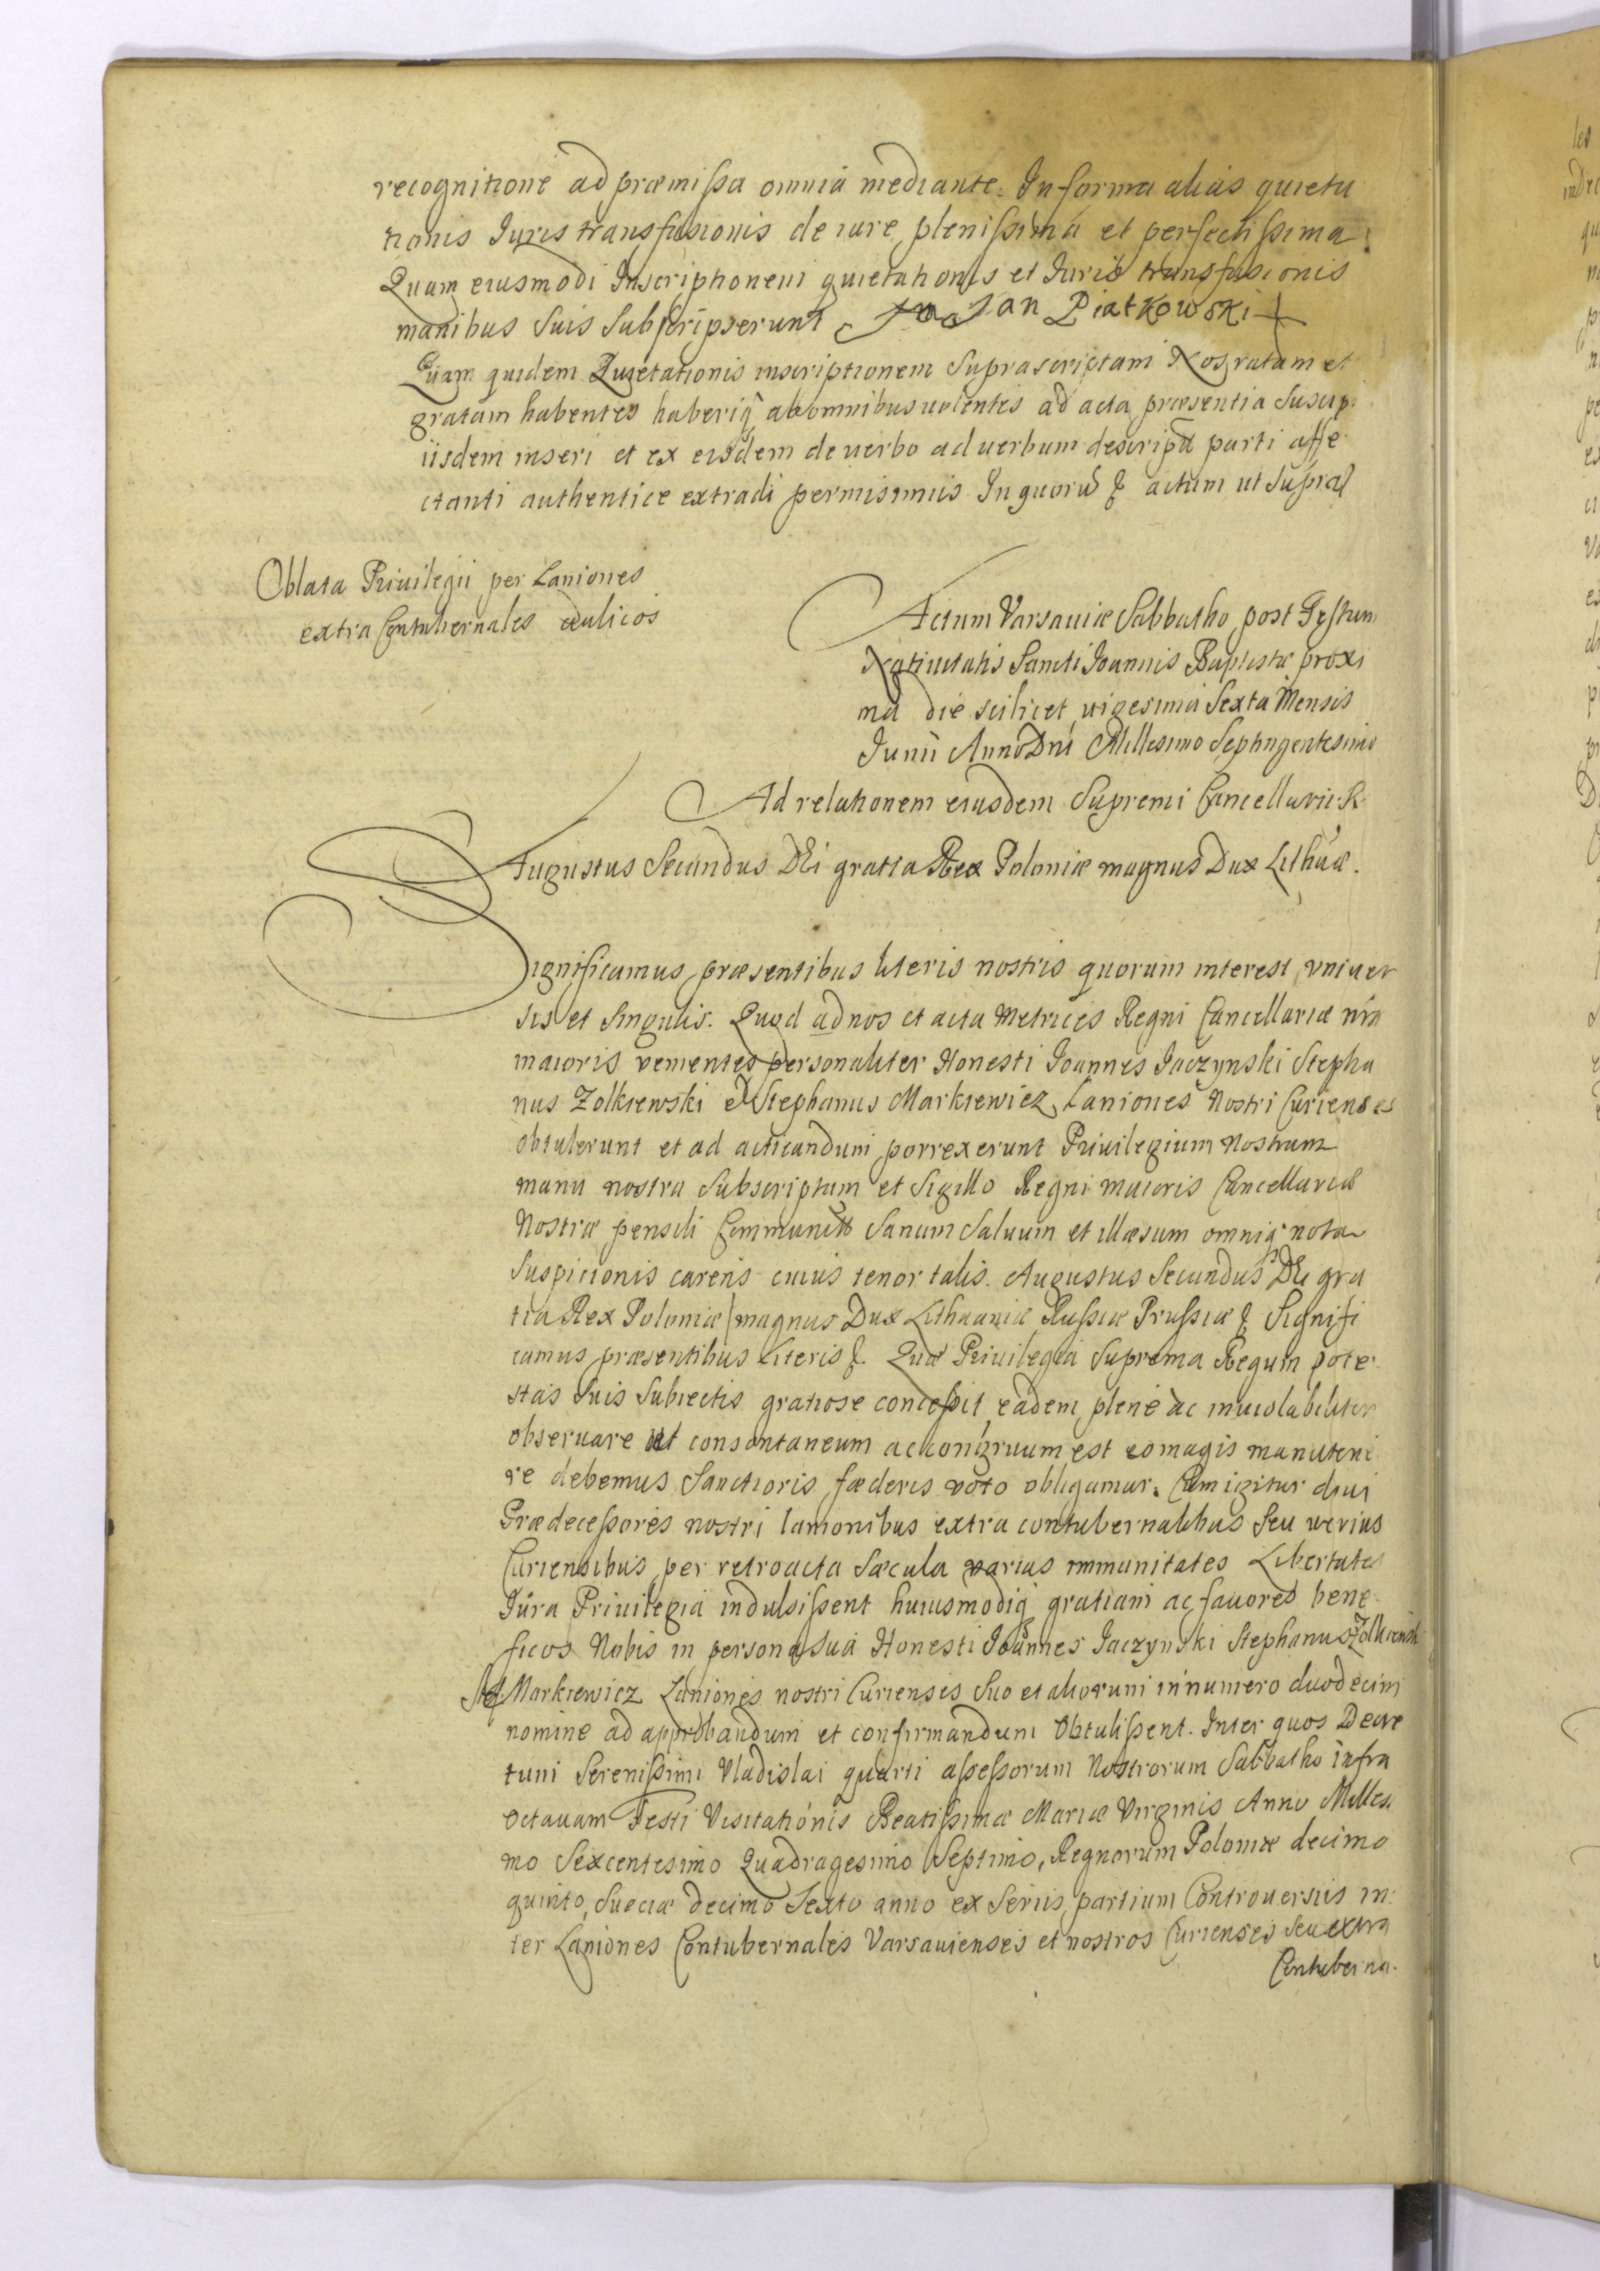 recognitione ad præmissa omnia mediante. In forma alias quieta
tionis Iuris transfusionis de iure plenissima et perfectissima.
Quam eiusmodi Inscriptionem quietationis et Iuris transfusionis
manibus suis subscripserunt Jan Piatkowski
Quam quidem Quietationis inscriptionem suprascriptam Nos ratam et
gratam habentes haberiq ab omnibus volentes ad acta præsentia suscip
iisdem inseri et ex eisdem de verbo ad verbum descriptã parti affe
ctanti authentice extradi permisimus In quorũ & actum ut supra
Oblata Priuilegii per Laniones
extra Contubernales aulicos
Actum Varsauiæ Sabbatho post Festum
Natiuitatis Sancti Ioannis Baptistæ proxi
ma die scilicet vigesima Sexta Mensis
Iunii Anno Dni Millesimo Septingentesimo
Ad relationem eiusdem Supremi Cancellarii R.
Augustus Secundus DEi gratia Rex Poloniæ magnus Dux Lithuæ.
Significamus præsentibus literis nostris quorum interest, vniuer
sis et singulis. Quod ad nos et acta Metrices Regni Cancellariæ nrã
maioris venientes personaliter Honesti Ioannes Iaczynski Stepha
nus Zolkiewski et Stephanus Markiewicz Laniones Nostri Curienses
obtulerunt et ad acticandum porrexerunt Priuilegium Nostrum
manu nostra Subscriptum et Sigillo Regni maioris Cancellariæ
Nostræ pensili Communitũ Sanum Saluum et illæsum omniq nota
Suspicionis carens cuius tenor talis. Augustus Secundus DEi gra
tia Rex Poloniæ magnus Dux Lithuaniæ Russiæ Prussiæ & Signifi
camus præsentibus Literis &. Quæ Priuilegia Suprema Regum pote
stas Suis Subiectis gratiose concessit, eadem plene ac inuiolabiliter
obseruare ut consentaneum ac congruum est eo magis manuteni
re debemus Sanctioris fæderis voto obligamur. Cum igitur diui
Prædecessores nostri lanionibus extra contubernalibus Seu verius
Curiensibus per retroacta Sæcula varias immunitates Libertates
Iura Priuilegia indulsissent huiusmodiq gratiam ac fauores bene
ficos Nobis in persona sua Honesti Ioannes Iaczynski Stephanus Zolkiewski
Stef Markiewicz Laniones nostri Curienses Suo et aliorum in numero duodecim
nomine ad approbandum et confirmandum Obtulissent. Inter quos Decre
tum Serenissimi Vladislai quarti assessorum Nostrorum Sabbatho infra
octauam Festi Visitationis Beatissimæ Mariæ Virginis Anno Millesi
mo Sexcentesimo Quadragesimo Septimo, Regnorum Poloniæ decimo
quinto, Sueciæ decimo Sexto anno ex Seriis partium Controuersiis in
ter Laniones Contubernales Varsauienses et nostros Curienses Seu extra
Contuberna.